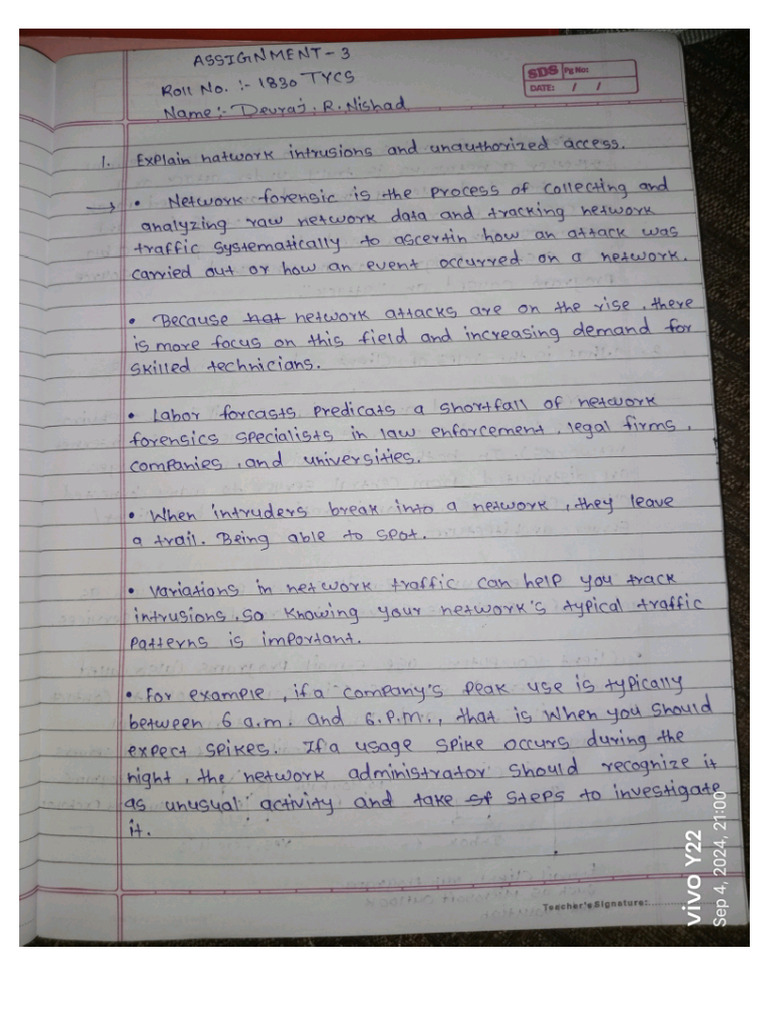 ASSIGNMENT - 3
Roll No. :- 1830 TYCS
Name :- Devraj . R. Nishad
SDS Pg No:
DATE: / /
1. Explain natwork intrusions and unauthorized access.
→ • Network forensic is the process of collecting and
analyzing raw network data and tracking network
traffic systematically to ascertin how an attack was
carried out or how an event occurred on a network.
• Because hat network attacks are on the rise, there
is more focus on this field and increasing demand for
skilled technicians.
• Labor forcasts predicats a shortfall of network
forensics specialists in law enforcement, legal firms,
companies, and universities.
• When intruders break into a network, they leave
a trail. Being able to spot.
• Variations in network traffic can help you track
intrusions, so knowing your network's typical traffic
patterns is important.
• For example, if a company's peak use is typically
between 6 a.m. and 6.P.M., that is when you should
expect spikes. If a usage spike occurs during the
night, the network administrator should recognize it
as unusual activity and take st steps to investigate
it.
Teacher's Signature:......
vivo Y22
Sep 4, 2024, 21:00